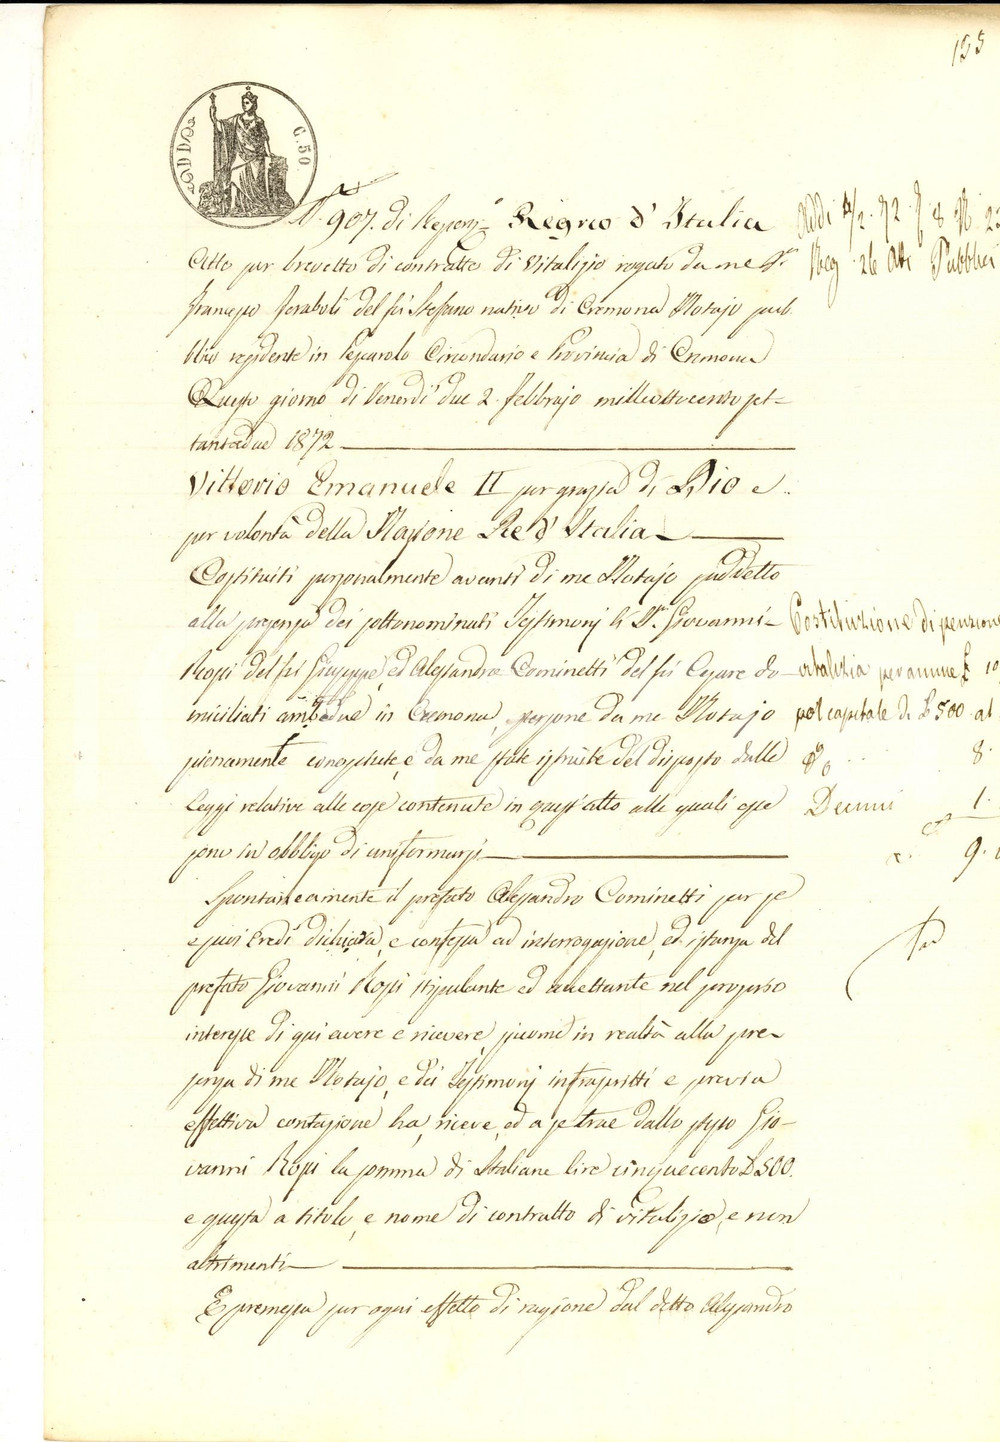 155
C. 50
N. 907. di Repert. Regno d'Italia
Atto per brevetto di contratto di Vitalizio rogato da me Dr.
Francesco Feraboli del fu Stefano nativo di Cremona Notajo pub-
blico residente in Pescarolo Circondario e Provincia di Cremona
Questo giorno di Venerdì due 2. Febbrajo mille ottocento set-
tantadue 1872
Vittorio Emanuele II per grazia di Dio e
per volontà della Nazione Re d'Italia
Costituiti personalmente avanti di me Notajo suddetto
alla presenza dei sottonominati Testimonj li Dr. Giovanni
Rossi del fu Giuseppe, ed Alessandro Cominetti del fu Cesare do-
miciliati ambedue in Cremona, persone da me Notajo
pienamente conosciute, e da me state istruite del disposto dalle
Leggi relative alle cose contenute in quest'atto alle quali esse
sono in obbligo di uniformarsi
Spontaneamente il prefato Alessandro Cominetti per se
e suoi Eredi dichiara, e confessa ad interrogazione, ed istanza del
prefato Giovanni Rossi stipulante ed accettante nel proprio
interesse di qui avere e ricevere, siccome in realtà alla pre-
senza di me Notajo, e dei Testimonj infrascritti e previa
effettiva contazione ha, riceve, ed a se trae dallo stesso Gio-
vanni Rossi la somma di Italiane lire cinquecento L. 500.
e questa a titolo, e nome di contratto di vitalizio, e non
altrimenti
E premessa per ogni effetto di ragione dal detto Alessandro
Addì 4/2. 72 f. 8 N. 23
Reg. 26 Atti Pubblici
Costituzione di pensione
vitalizia per annue £ 10
pel capitale di £ 500 al
8.
Decimi 1.
9.